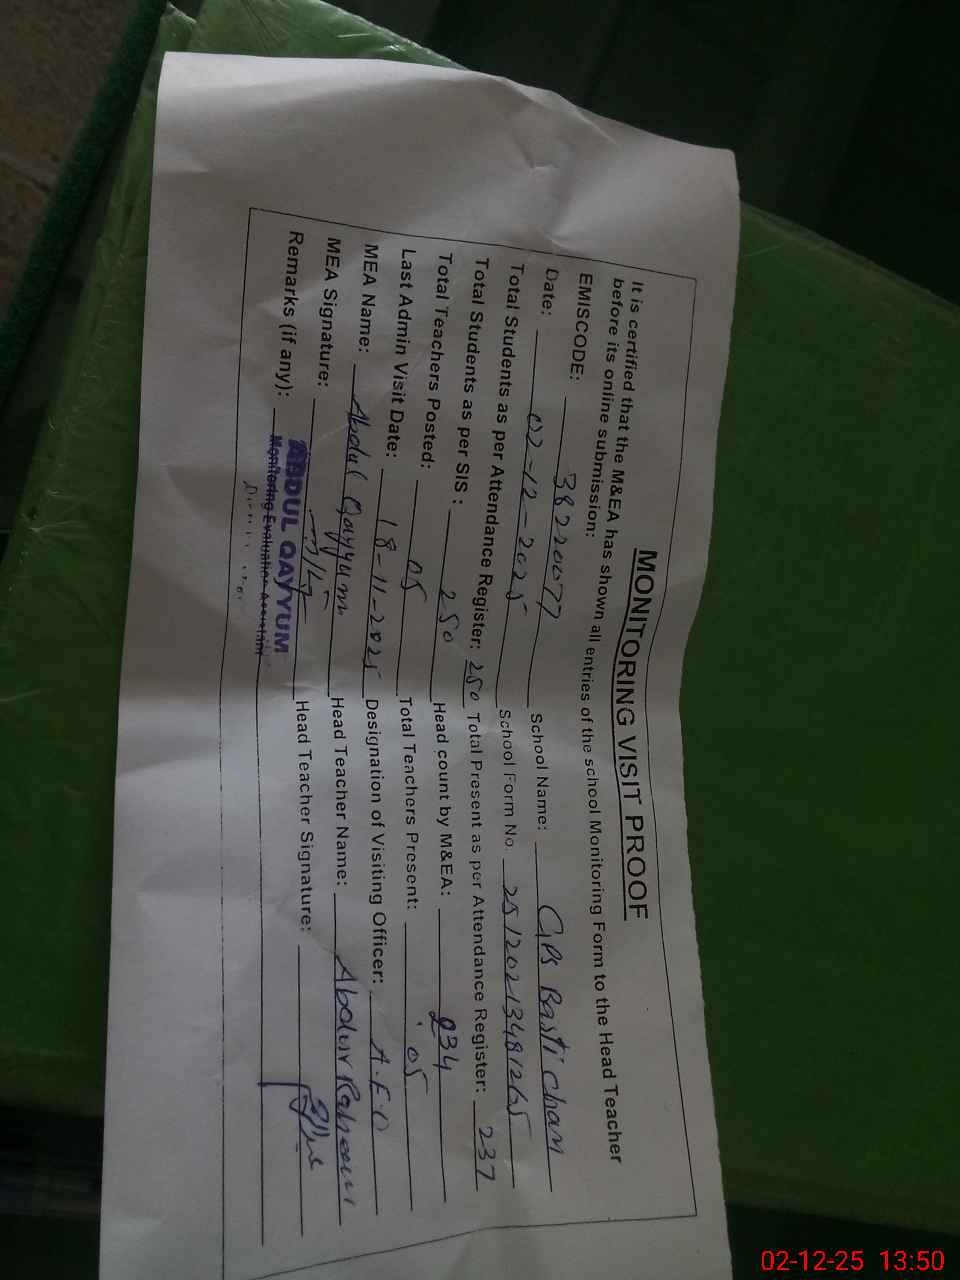 MONITORING VISIT PROOF
It is certified that the M&EA has shown all entries of the school Monitoring Form to the Head Teacher
before its online submission:
EMISCODE: 38220077 School Name: GPS Basti Chan
Date: 02-12-2025 School Form No. 25120213481265
Total Students as per Attendance Register: 250 Total Present as per Attendance Register: 237
Total Students as per SIS : 250 Head count by M&EA: 234
Total Teachers Posted: 05 Total Teachers Present: 05
Last Admin Visit Date: 18-11-2025 Designation of Visiting Officer: A.E.O
MEA Name: Abdul Qayyum Head Teacher Name: Abdur Raheem
MEA Signature: Head Teacher Signature:
Remarks (if any):
ABDUL QAYYUM
Monitoring Evaluation Assistant
02-12-25 13:50